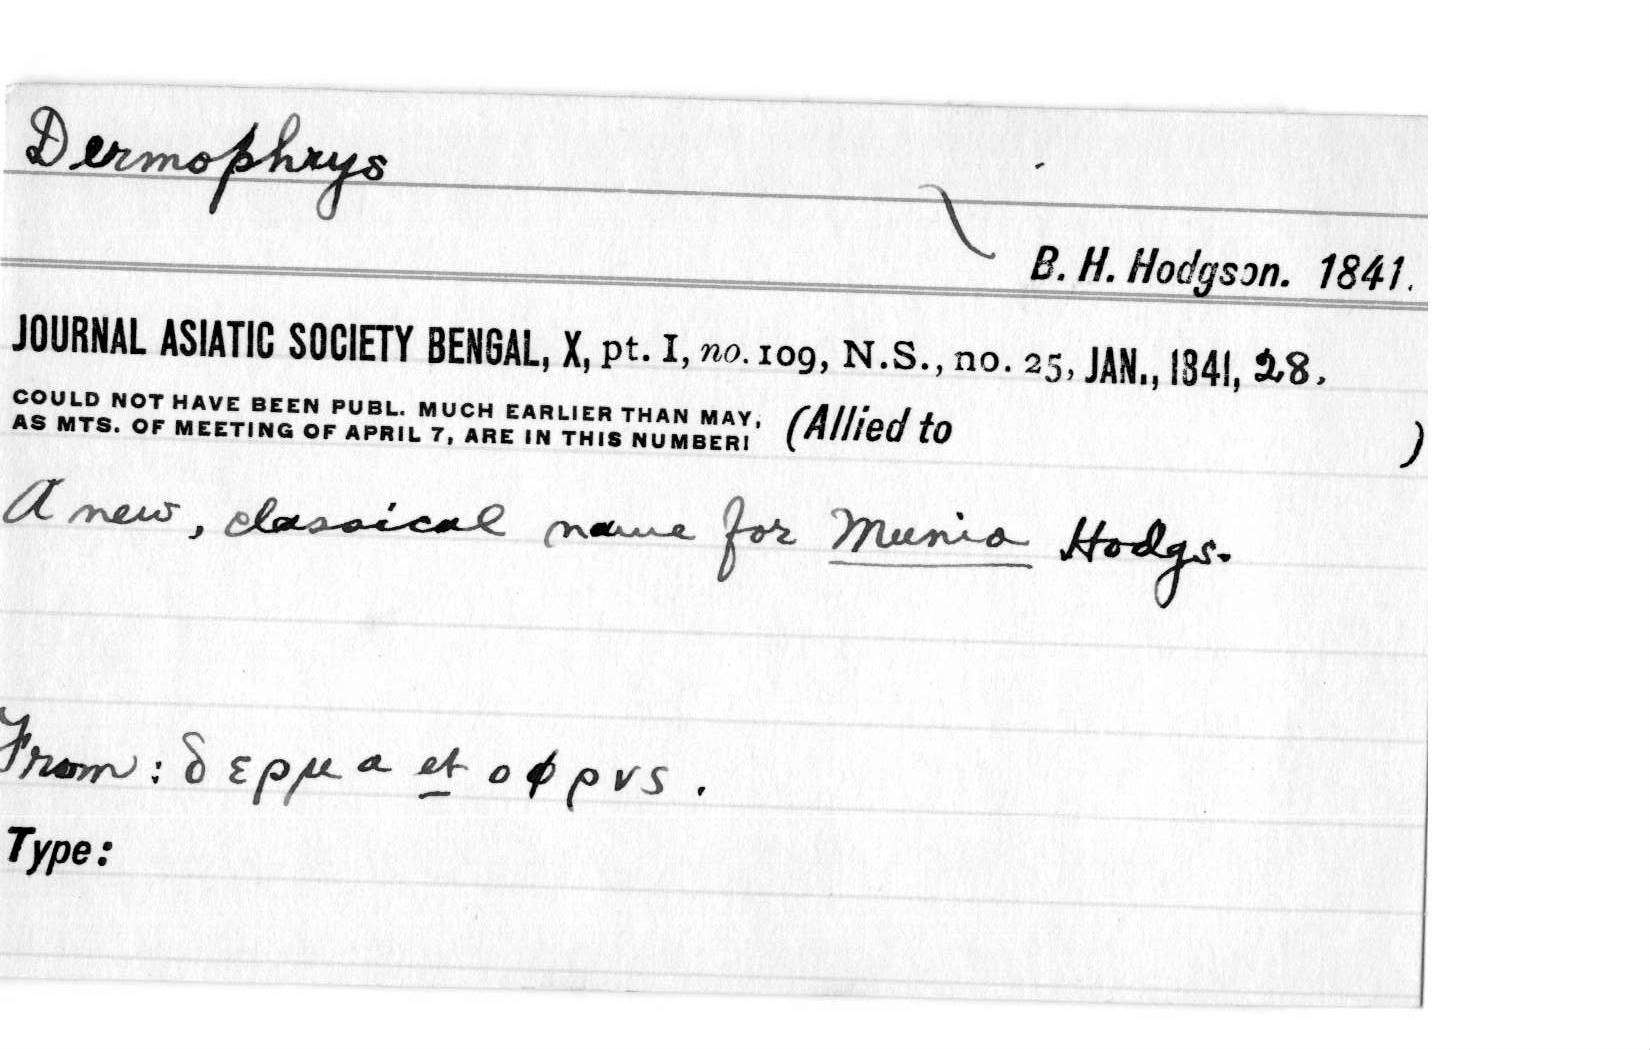 Dermophrys
B. H. Hodgson. 1841.
JOURNAL ASIATIC SOCIETY BENGAL, X, pt. I, no. 109, N.S., no. 25, JAN., 1841, 28.
COULD NOT HAVE BEEN PUBL. MUCH EARLIER THAN MAY,
AS MTS. OF MEETING OF APRIL 7, ARE IN THIS NUMBER! (Allied to )
A new, classical name for Munia Hodgs.
From: δερμα et οφρvς.
Type: